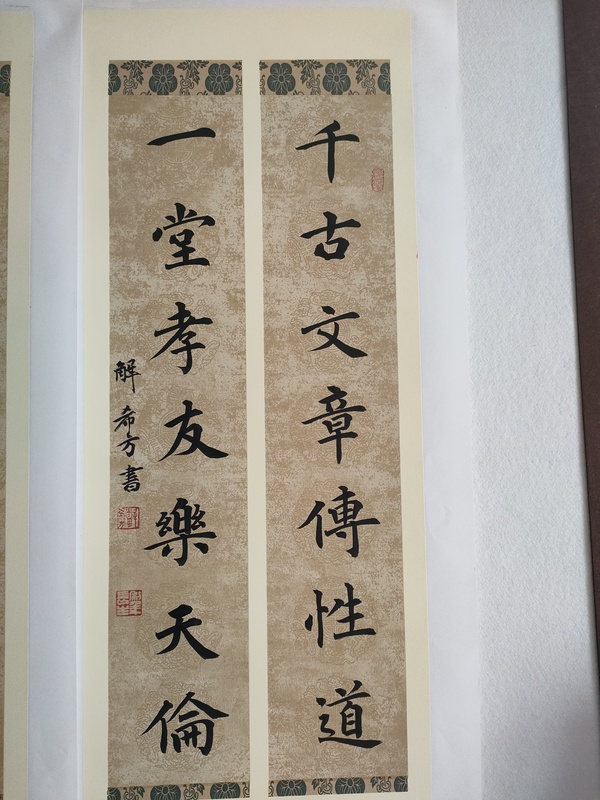 千古文章傳性道
一堂孝友樂天倫
解希方書